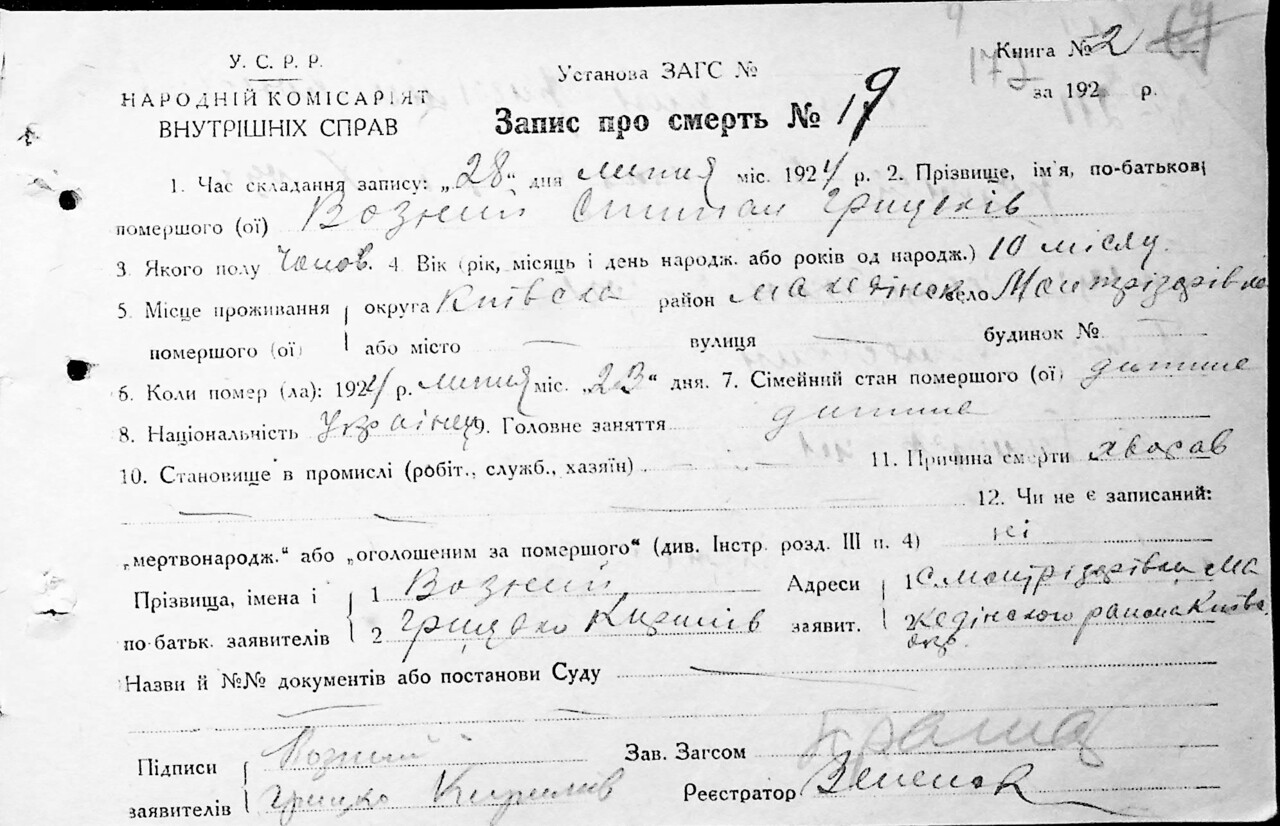 У. С. Р. Р.
НАРОДНІЙ КОМІСАРІЯТ
ВНУТРІШНІХ СПРАВ
Установа ЗАГС №
Книга № 2
171
за 192 р.
Запис про смерть № 19
1. Час складання запису: „28“ дня липня міс. 1924 р. 2. Прізвище, ім'я, по-батькові
помершого (ої) Возний Степан Грицьків
3. Якого полу Чолов. 4. Вік (рік, місяць і день народж. або років од народж.) 10 місяц.
5. Місце проживання округа Київська район село
помершого (ої) або місто — вулиця — будинок №
6. Коли помер (ла): 1924 р. липня міс. „23“ дня. 7. Сімейний стан помершого (ої) дитине
8. Національність Українец 9. Головне заняття дитине
10. Становище в промислі (робіт., служб., хазяїн) 11. Причина смерти хворав
— — — — 12. Чи не є записаний:
„мертвонародж.“ або „оголошеним за помершого“ (див. Інстр. розд. III п. 4) ні
Прізвища, імена і 1 Возний Адреси 1 с.
по-батьк. заявителів 2 Грицько Кирилів заявит. 2 района Київс.
окр.
Назви й №№ документів або постанови Суду —
— —
Підписи Возний Зав. Загсом
заявителів Грицко Кирилів Реєстратор